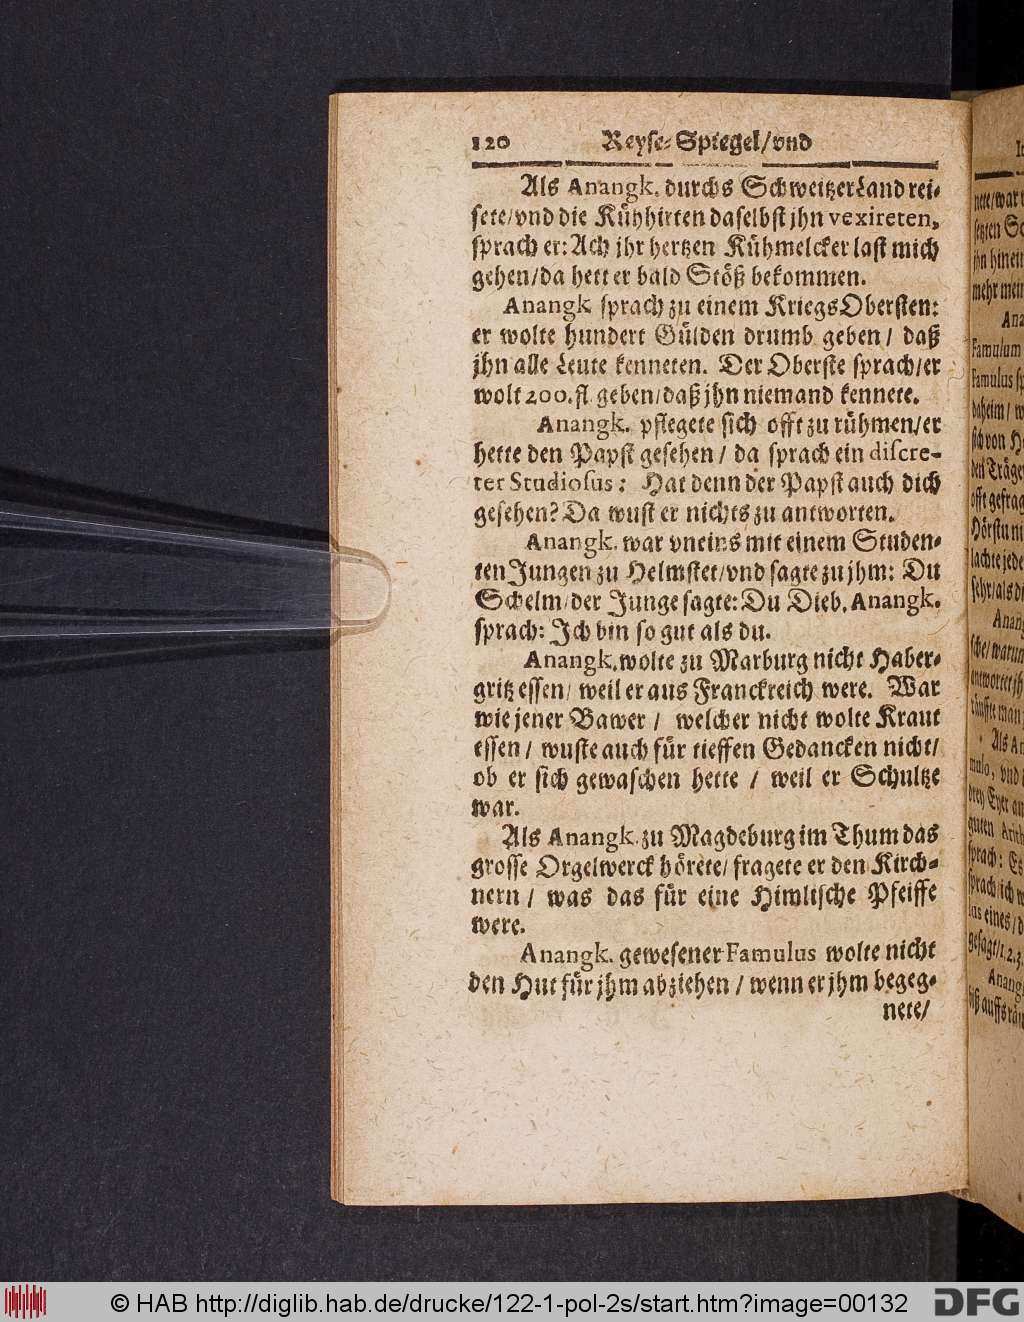 120 Reyse-Spiegel/vnd
Als Anangk. durchs SchweitzerLand rei-
sete/vnd die Kühhirten daselbst jhn vexireten,
sprach er: Ach jhr hertzen Kühmelcker last mich
gehen/da hett er bald Stöß bekommen.
Anangk sprach zu einem KriegsObersten:
er wolte hundert Gülden drumb geben/ daß
jhn alle Leute kenneten. Der Oberste sprach/er
wolt 200.fl. geben/daß jhn niemand kennete.
Anangk. pflegete sich offt zu rühmen/er
hette den Papst gesehen/ da sprach ein discre-
ter Studiosus: Hat denn der Papst auch dich
gesehen? Da wust er nichts zu antworten.
Anangk. war vneins mit einem Studen-
ten Jungen zu Helmstet/vnd sagte zu jhm: Du
Schelm/der Junge sagte: Du Dieb. Anangk.
sprach: Ich bin so gut als du.
Anangk. wolte zu Marburg nicht Haber-
gritz essen/ weil er aus Franckreich were. War
wie jener Bawer / welcher nicht wolte Kraut
essen / wuste auch für tieffen Gedancken nicht/
ob er sich gewaschen hette / weil er Schultze
war.
Als Anangk. zu Magdeburg im Thum das
grosse Orgelwerck hörete/ fragete er den Kirch-
nern / was das für eine Himlische Pfeiffe
were.
Anangk. gewesener Famulus wolte nicht
den Hut für jhm abziehen / wenn er jhm begeg-
nete/
nete/war
setzten
jhn hinein
mehr
Famulum
Famulus
daheim/
sich von
den Träger
offt gefrag
Hörstu
lachte jede
sehr/als
Anang
sche/warum
antwortet
Als An
mulo, vnd
drey Eyer
guten
sprach: Es
sprach/ich
las eines/
gesagt/1.2.3.
Anang
© HAB http://diglib.hab.de/drucke/122-1-pol-2s/start.htm?image=00132
DFG